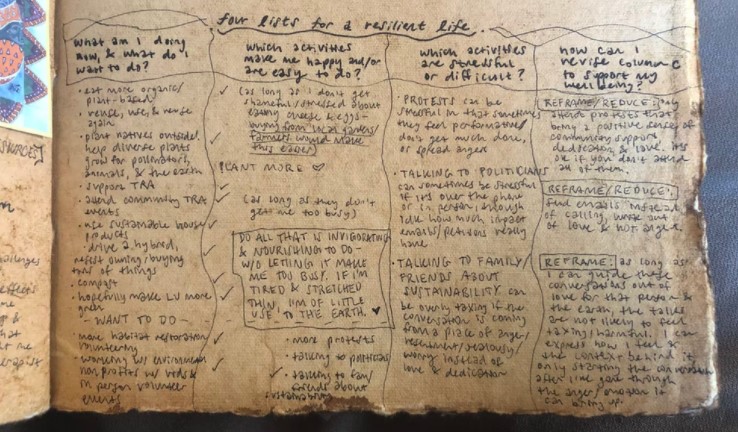 four lists for a resilient life
what am I doing
now, & what do I
want to do?
• eat more organic/
plant-based
• reuse, use, & reuse
again
• plant natives outside!
help diverse plants
grow for pollinators,
animals, & the earth
• support TRA
• attend community TRA
events
• use sustainable house
products
• drive a hybrid,
resist owning/buying
tons of things
• compost
• hopefully make LV more
green
- WANT TO DO -
more habitat restoration
volunteering
working w/ environmen
non profits w/ &
in person volunteer
events
which activities
make me happy and/or
are easy to do?
(as long as I don't get
shameful/stressed about
eating cheese & eggs -
buying from local gardens/
farmers would make
this easier)
PLANT MORE ♥
(as long as they don't
get me too busy)
DO ALL THAT IS INVIGORATING
& NOURISHING TO DO -
W/O LETTING IT MAKE
ME TOO BUSY. IF I'M
TIRED & STRETCHED
THIN, I'M OF LITTLE
USE TO THE EARTH. ♥
• more protests
• talking to politicians
• talking to fam/
friends about
sustainability
which activities
are stressful
or difficult?
• PROTESTS can be
stressful in that sometimes
they feel performative/
don't get much done,
or spread anger
• TALKING TO POLITICIANS
can sometimes be stressful
if it's over the phone
or in person, though
idk how much impact
emails/petitions really
have
• TALKING TO FAMILY/
FRIENDS ABOUT
SUSTAINABILITY can
be only taxing if the
conversation is coming
from a place of anger/
resentment/jealousy/
worry instead of
love & dedication
how can I
revise column C
to support my
well being?
REFRAME/REDUCE: only
attend protests that
bring a positive sense of
community support
dedication & love. it's
ok if you don't attend
all of them.
REFRAME/REDUCE:
find emails instead
of calling, write out
of love & not anger.
REFRAME: as long as
I can guide these
conversations out of
love for that person &
the earth, the talks
are not likely to feel
taxing/harmful. I can
express how I feel &
the context behind it
only starting the conversation
after I've gone through
the anger/emotion it
can bring up.